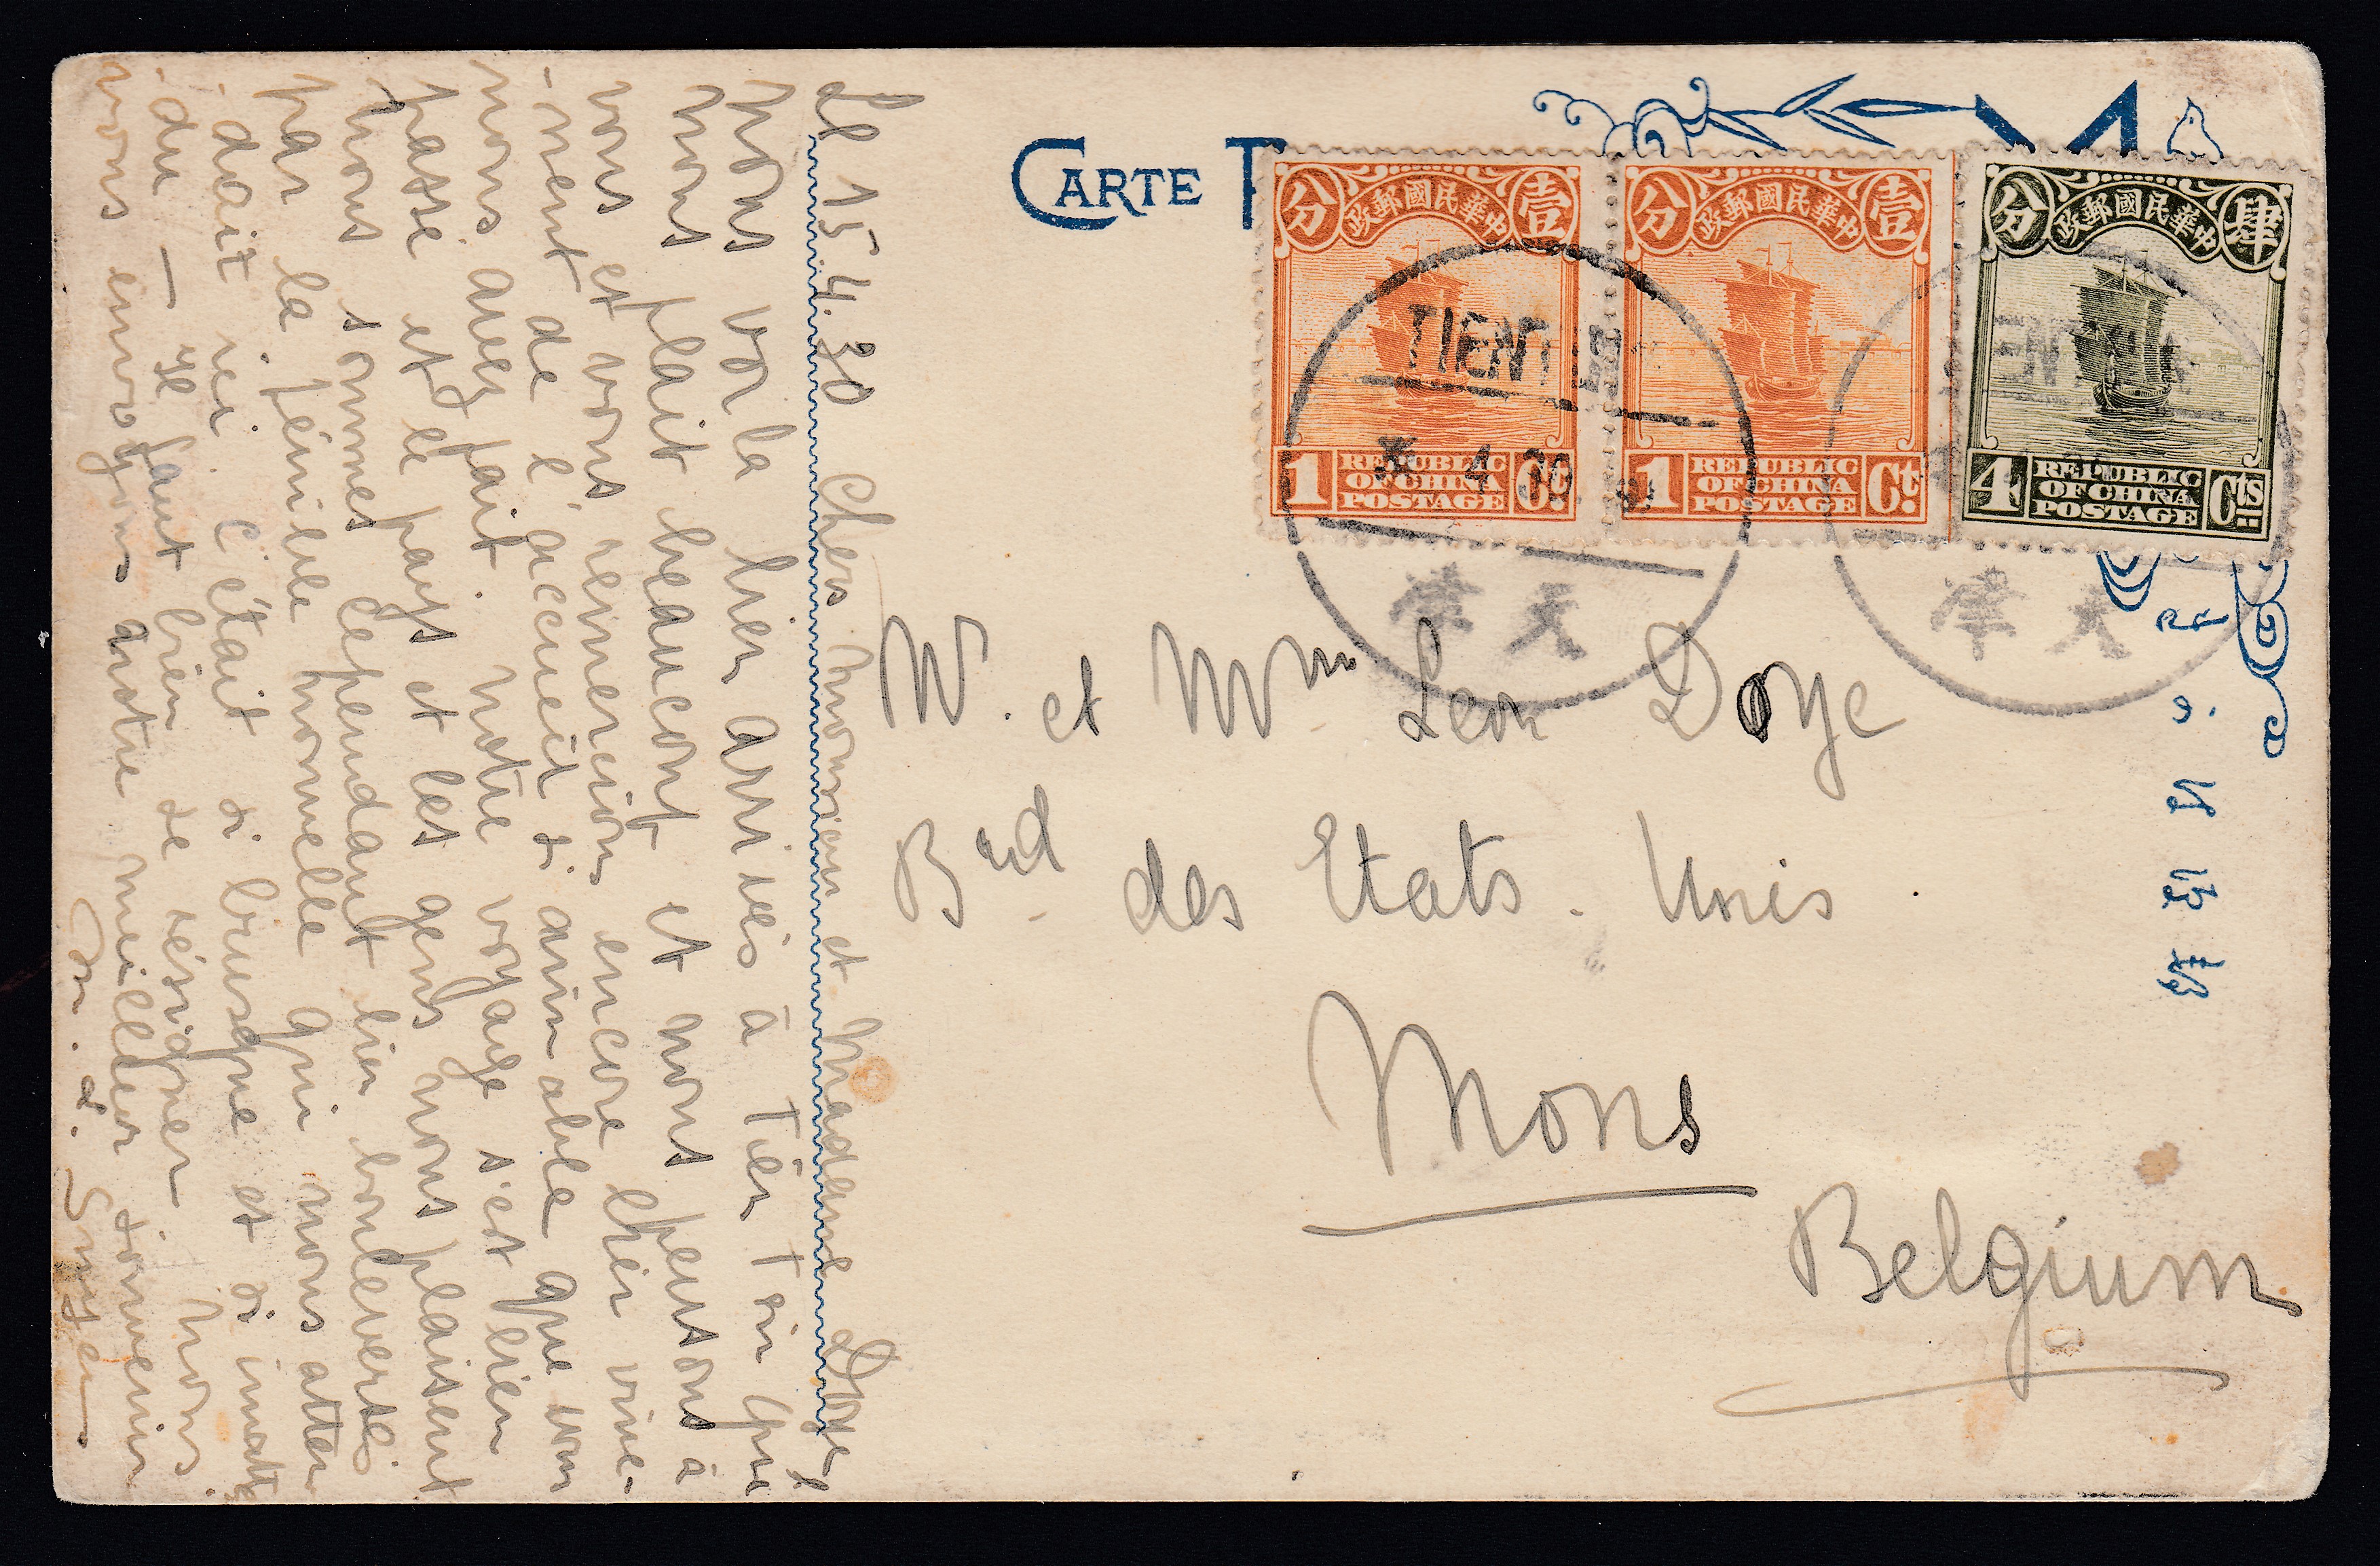 CARTE
分 中華民國郵政 壹
1 REPUBLIC OF CHINA POSTAGE Ct
分 中華民國郵政 壹
1 REPUBLIC OF CHINA POSTAGE Ct
分 中華民國郵政 肆
4 REPUBLIC OF CHINA POSTAGE Cts
TIENT
4 30
天津
天津
M. et Mme Leon Doye
Brd des Etats-Unis
Mons
Belgium
Le 15 4. 30 Chers monsieur et madame Doye
nous voila bien arrivés à Tien Tsin qui
nous plait beaucoup et nous pensons à
vous et vous remercions encore bien vive-
-ment de l'accueil si aimable que vous
nous avez fait. notre voyage s'est bien
passé et le pays et les gens nous plaisent
nous sommes cependant bien bouleversés
par la pénible nouvelle qui nous atten
-dait ici. C'était si brusque et si inatten
-du — il faut bien se résigner nous
vous envoyons notre meilleur souvenir